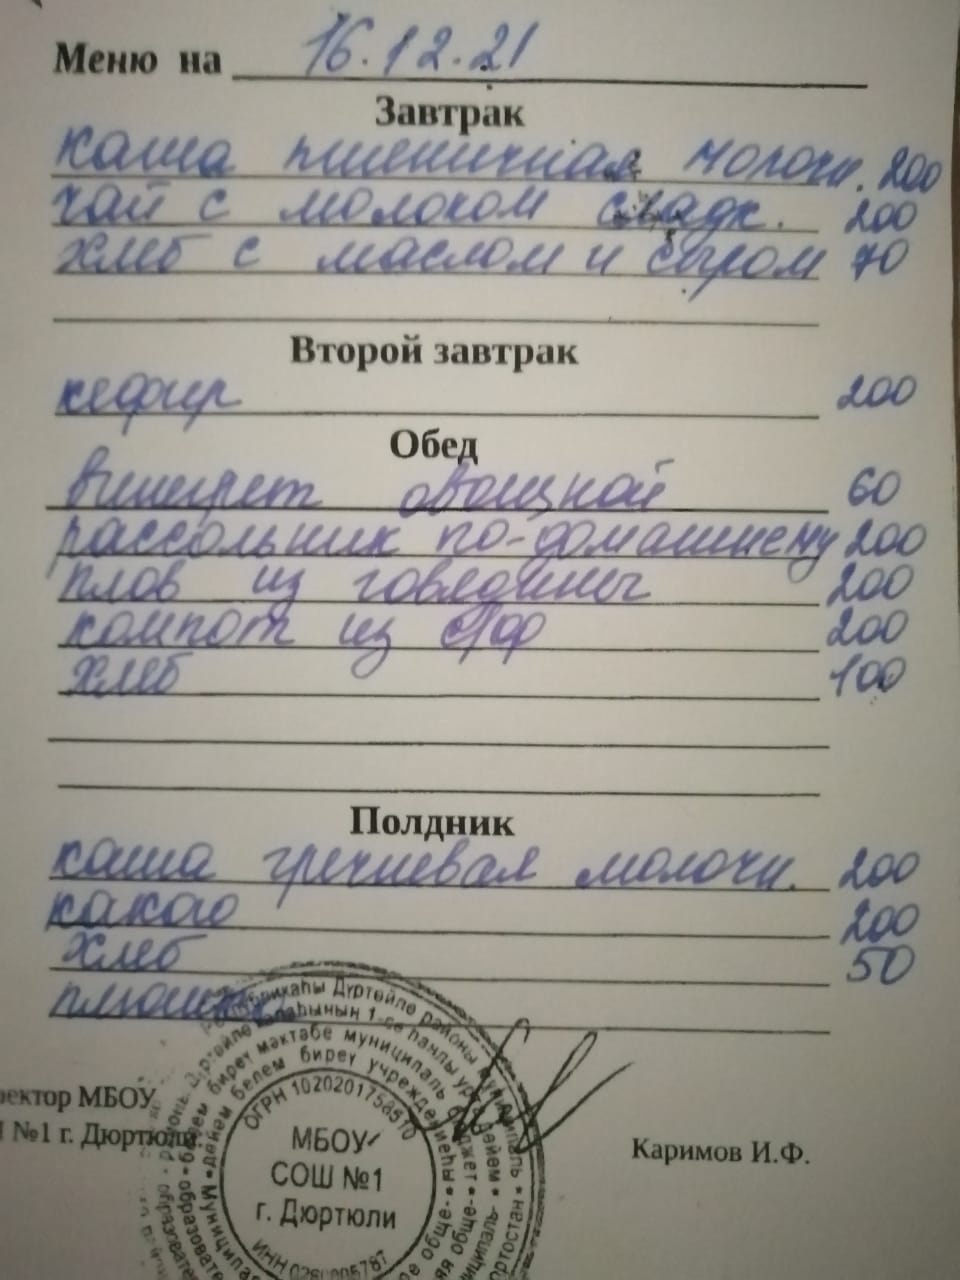 Меню на 16.12.21
Завтрак
каша пшеничная молочн. 200
чай с молоком сладк. 200
хлеб с маслом и сыром 70
Второй завтрак
кефир 200
Обед
винегрет овощной 60
рассольник по-домашнему 200
плов из говядины 200
компот из с/ф 200
хлеб 100
Полдник
каша гречневая молочн. 200
какао 200
хлеб 50
плюшка
ректор МБОУ
№1 г. Дюртюли
Каримов И.Ф.
ОГРН 1020201758510
МБОУ
СОШ №1
г. Дюртюли